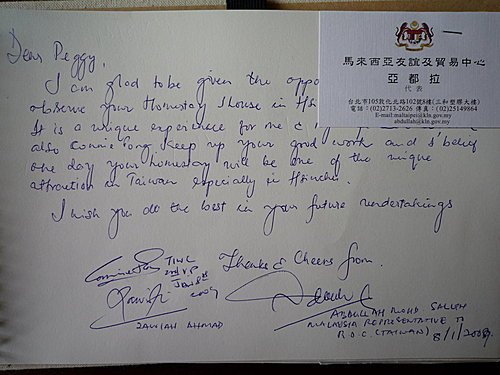 Dear Peggy,
I am glad to be given the oppo
observe your Homestay house in Hsi
It is a unique experience for me &
also Connie Ong. Keep up your good work and I belief
one day your homestay will be one of the unique
attraction in Taiwan especially in Hsinchu.
I wish you all the best in your future undertakings
Thanks & Cheers from.
TIWC
2nd V.P
Jan 8th
2009
ZAWIAH AHMAD
ABDULLAH MOHD SALLEH
MALAYSIA REPRESENTATIVE TO
R.O.C. (TAIWAN)
8/1/2009
馬來西亞友誼及貿易中心
亞都拉
代表
台北市105敦化北路102號8樓(三和塑膠大樓)
電話：(02)2713-2626 傳真：(02)25149864
E-mail:maltaipei@kln.gov.my
abdullah@kln.gov.my